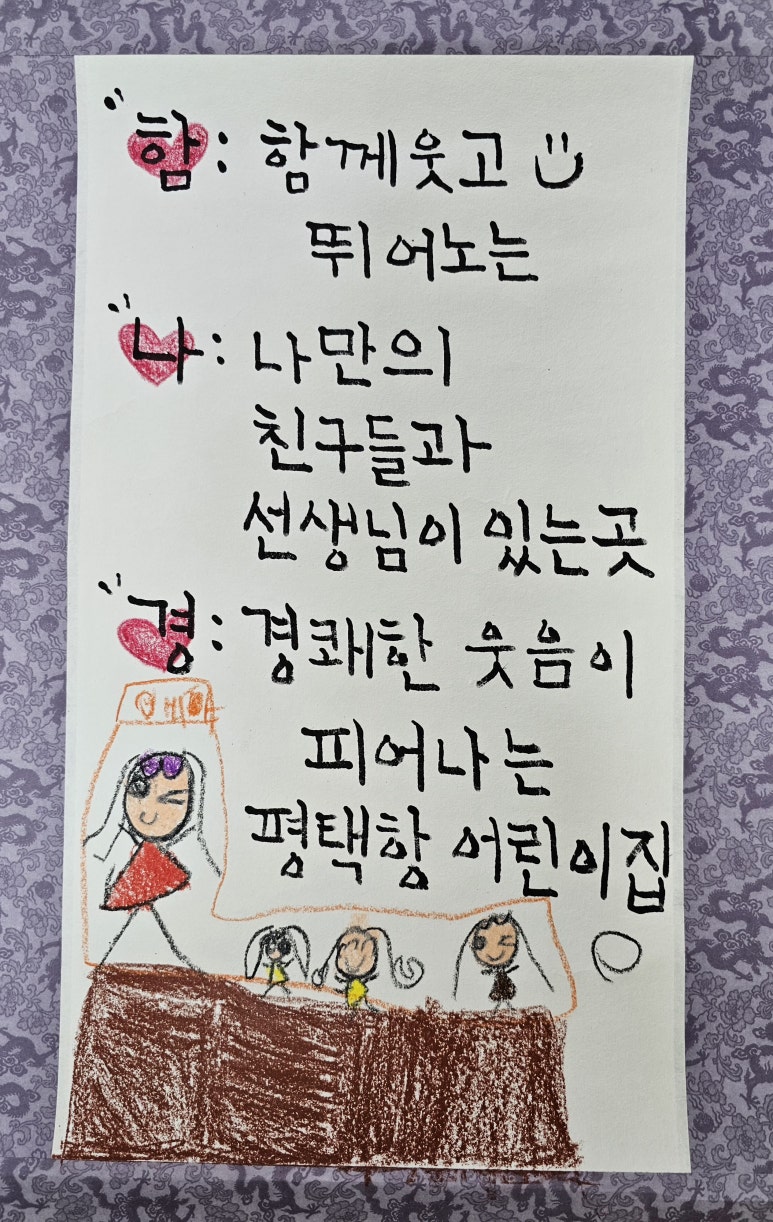 "함: 함께웃고
뛰어노는
"나: 나만의
친구들과
선생님이 있는곳
"경: 경쾌한 웃음이
피어나는
평택항 어린이집